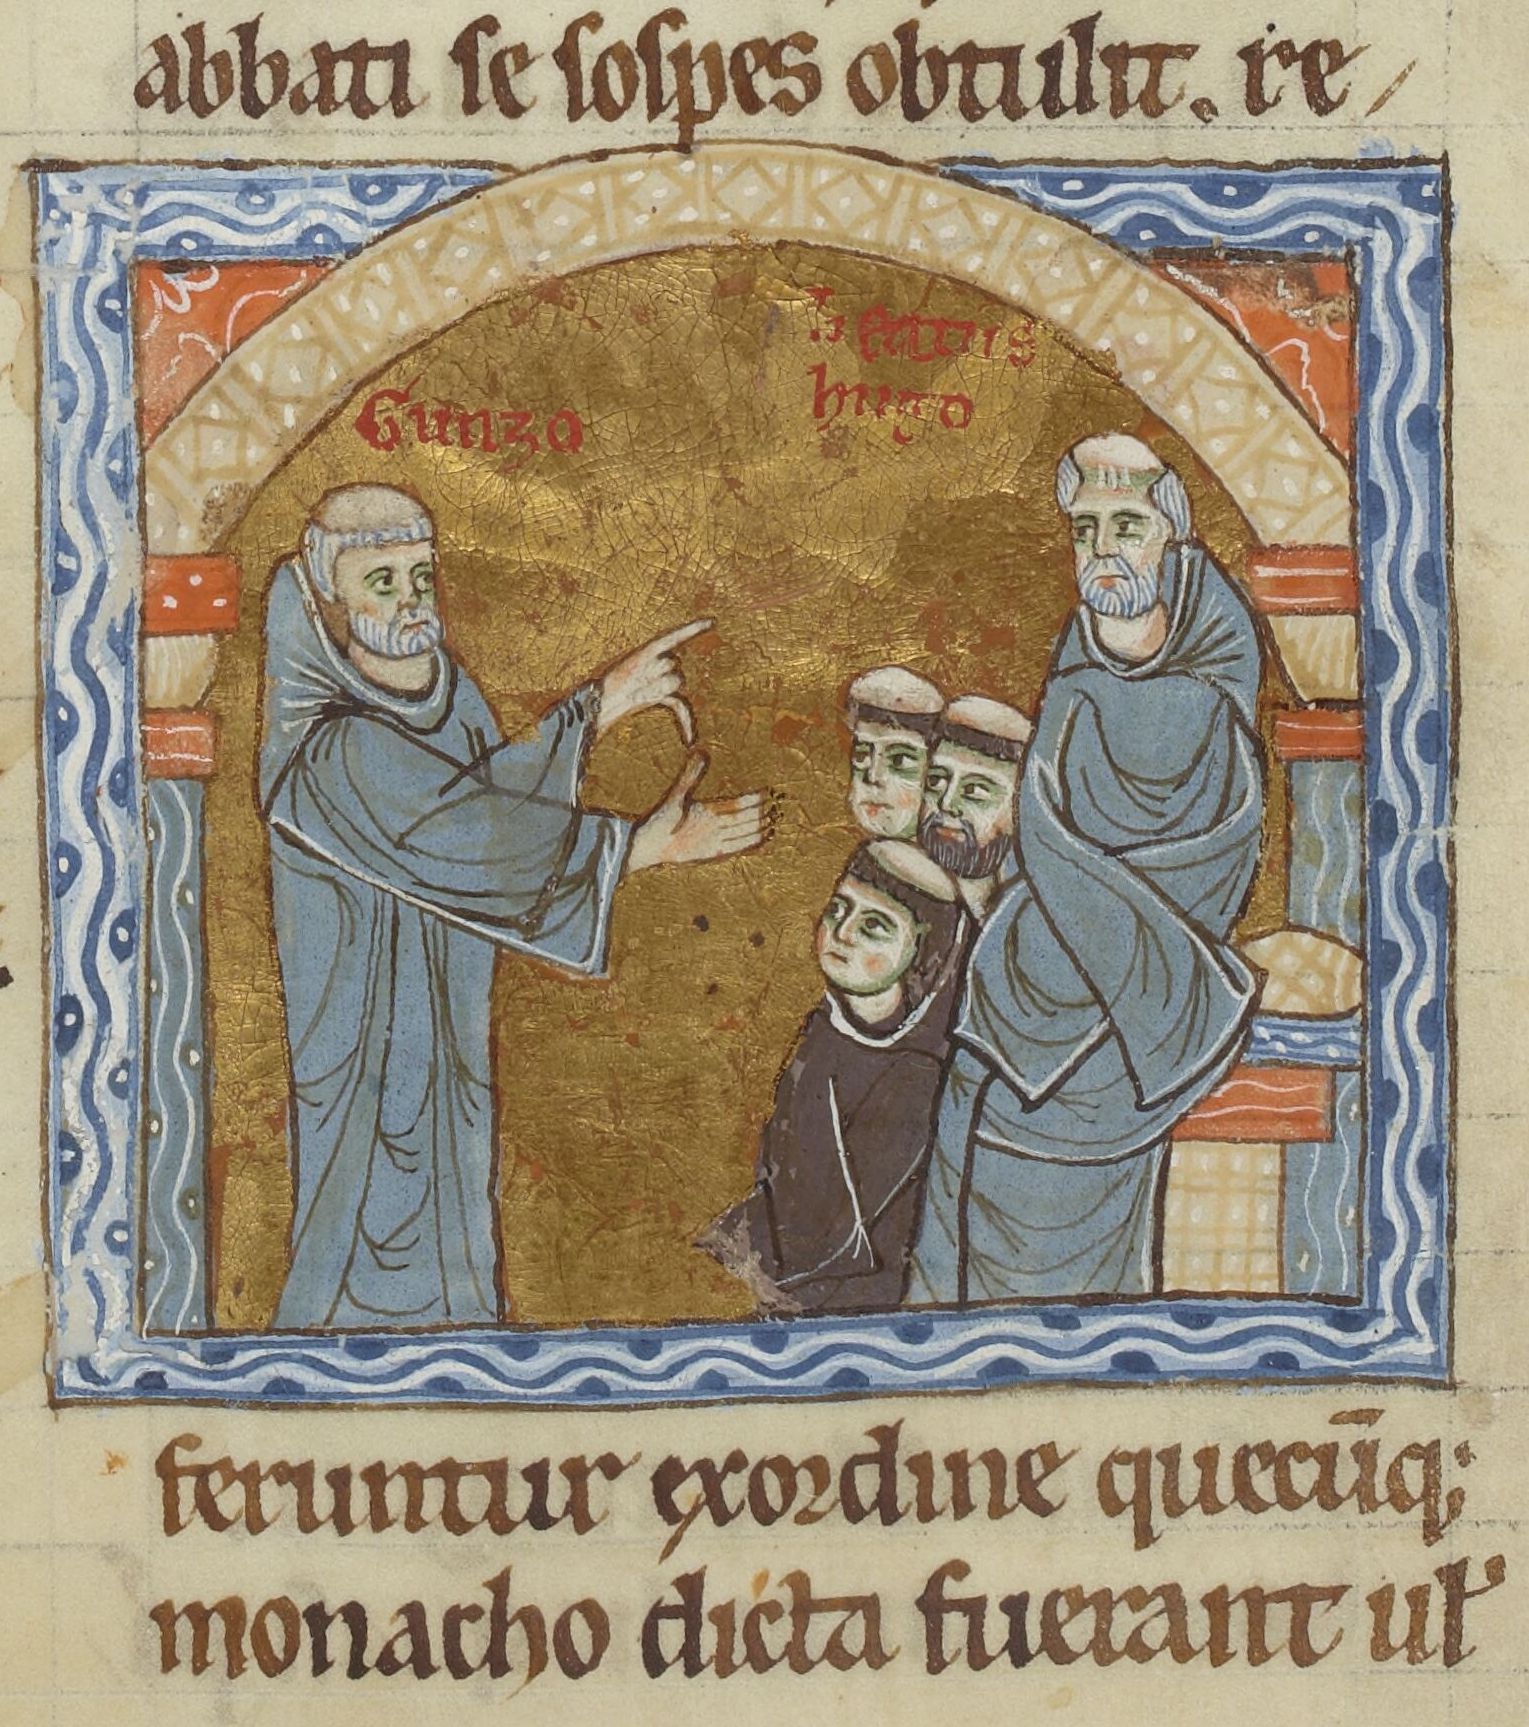 abbati se sospes obtulit. re/
Gunzo
beatus
hugo
feruntur exordine quecūq;
monacho dicta fuerant ul'